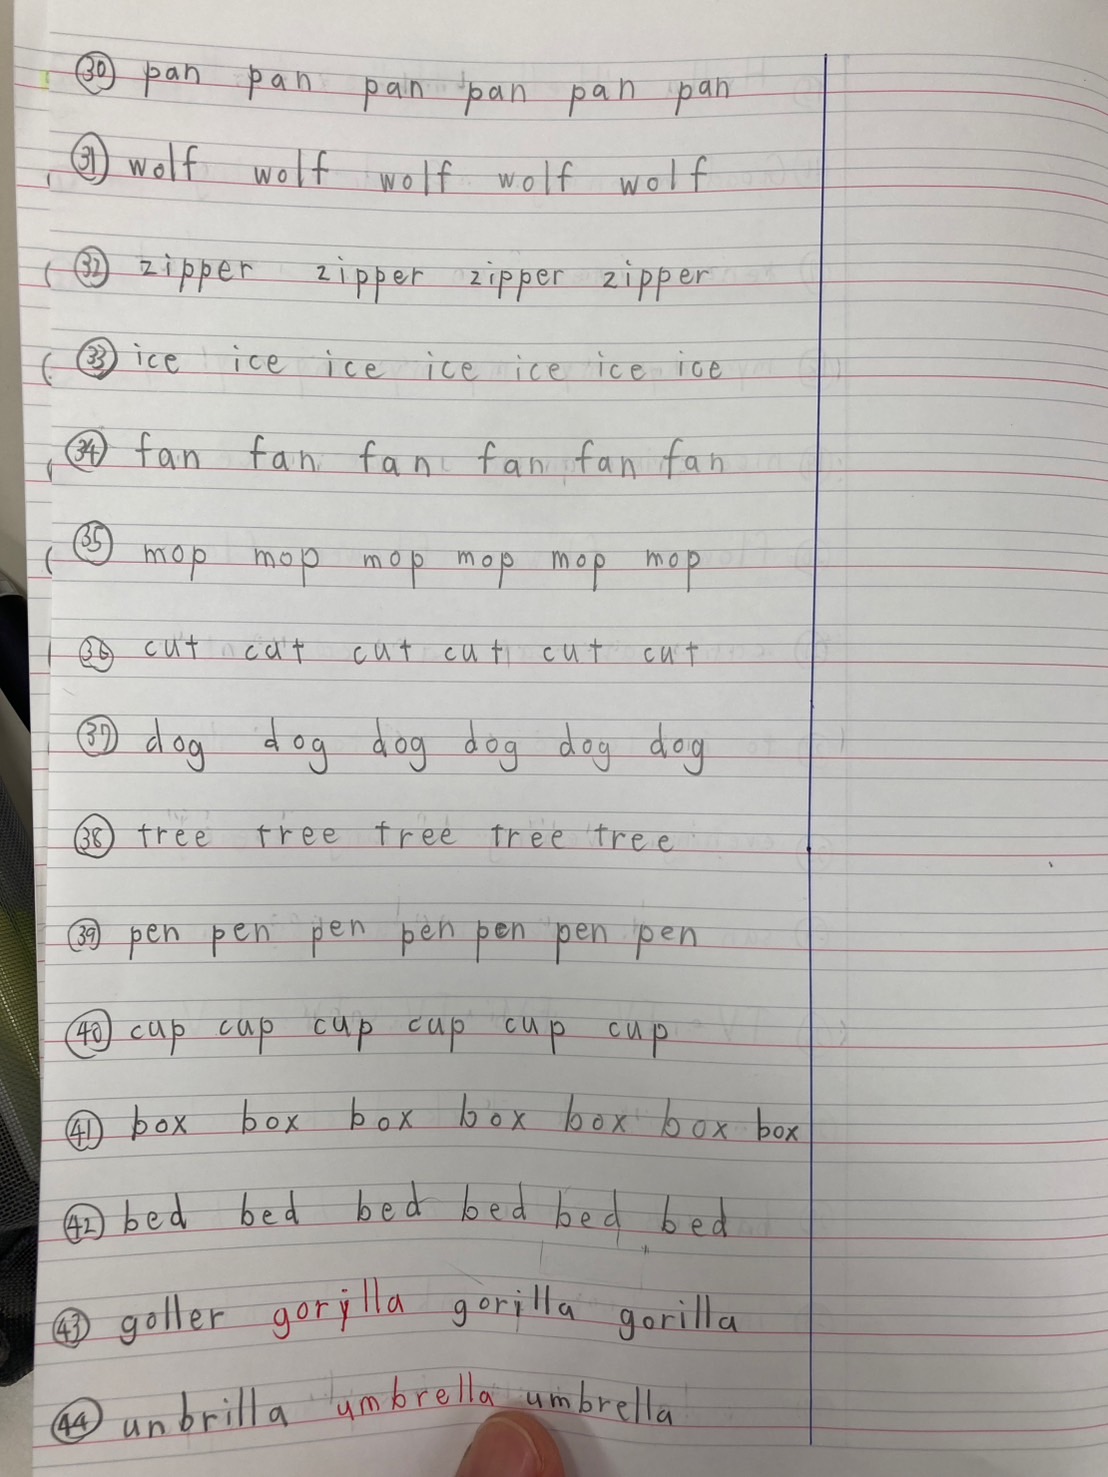 30 pan pan pan pan pan pan
31 wolf wolf wolf wolf wolf
32 zipper zipper zipper zipper
33 ice ice ice ice ice ice ice
34 fan fan fan fan fan fan
35 mop mop mop mop mop mop
36 cut cut cut cut cut cut
37 dog dog dog dog dog dog
38 tree tree tree tree tree
39 pen pen pen pen pen pen pen
40 cup cup cup cup cup cup
41 box box box box box box box
42 bed bed bed bed bed bed
43 goller gorilla gorilla gorilla
44 unbrilla umbrella umbrella